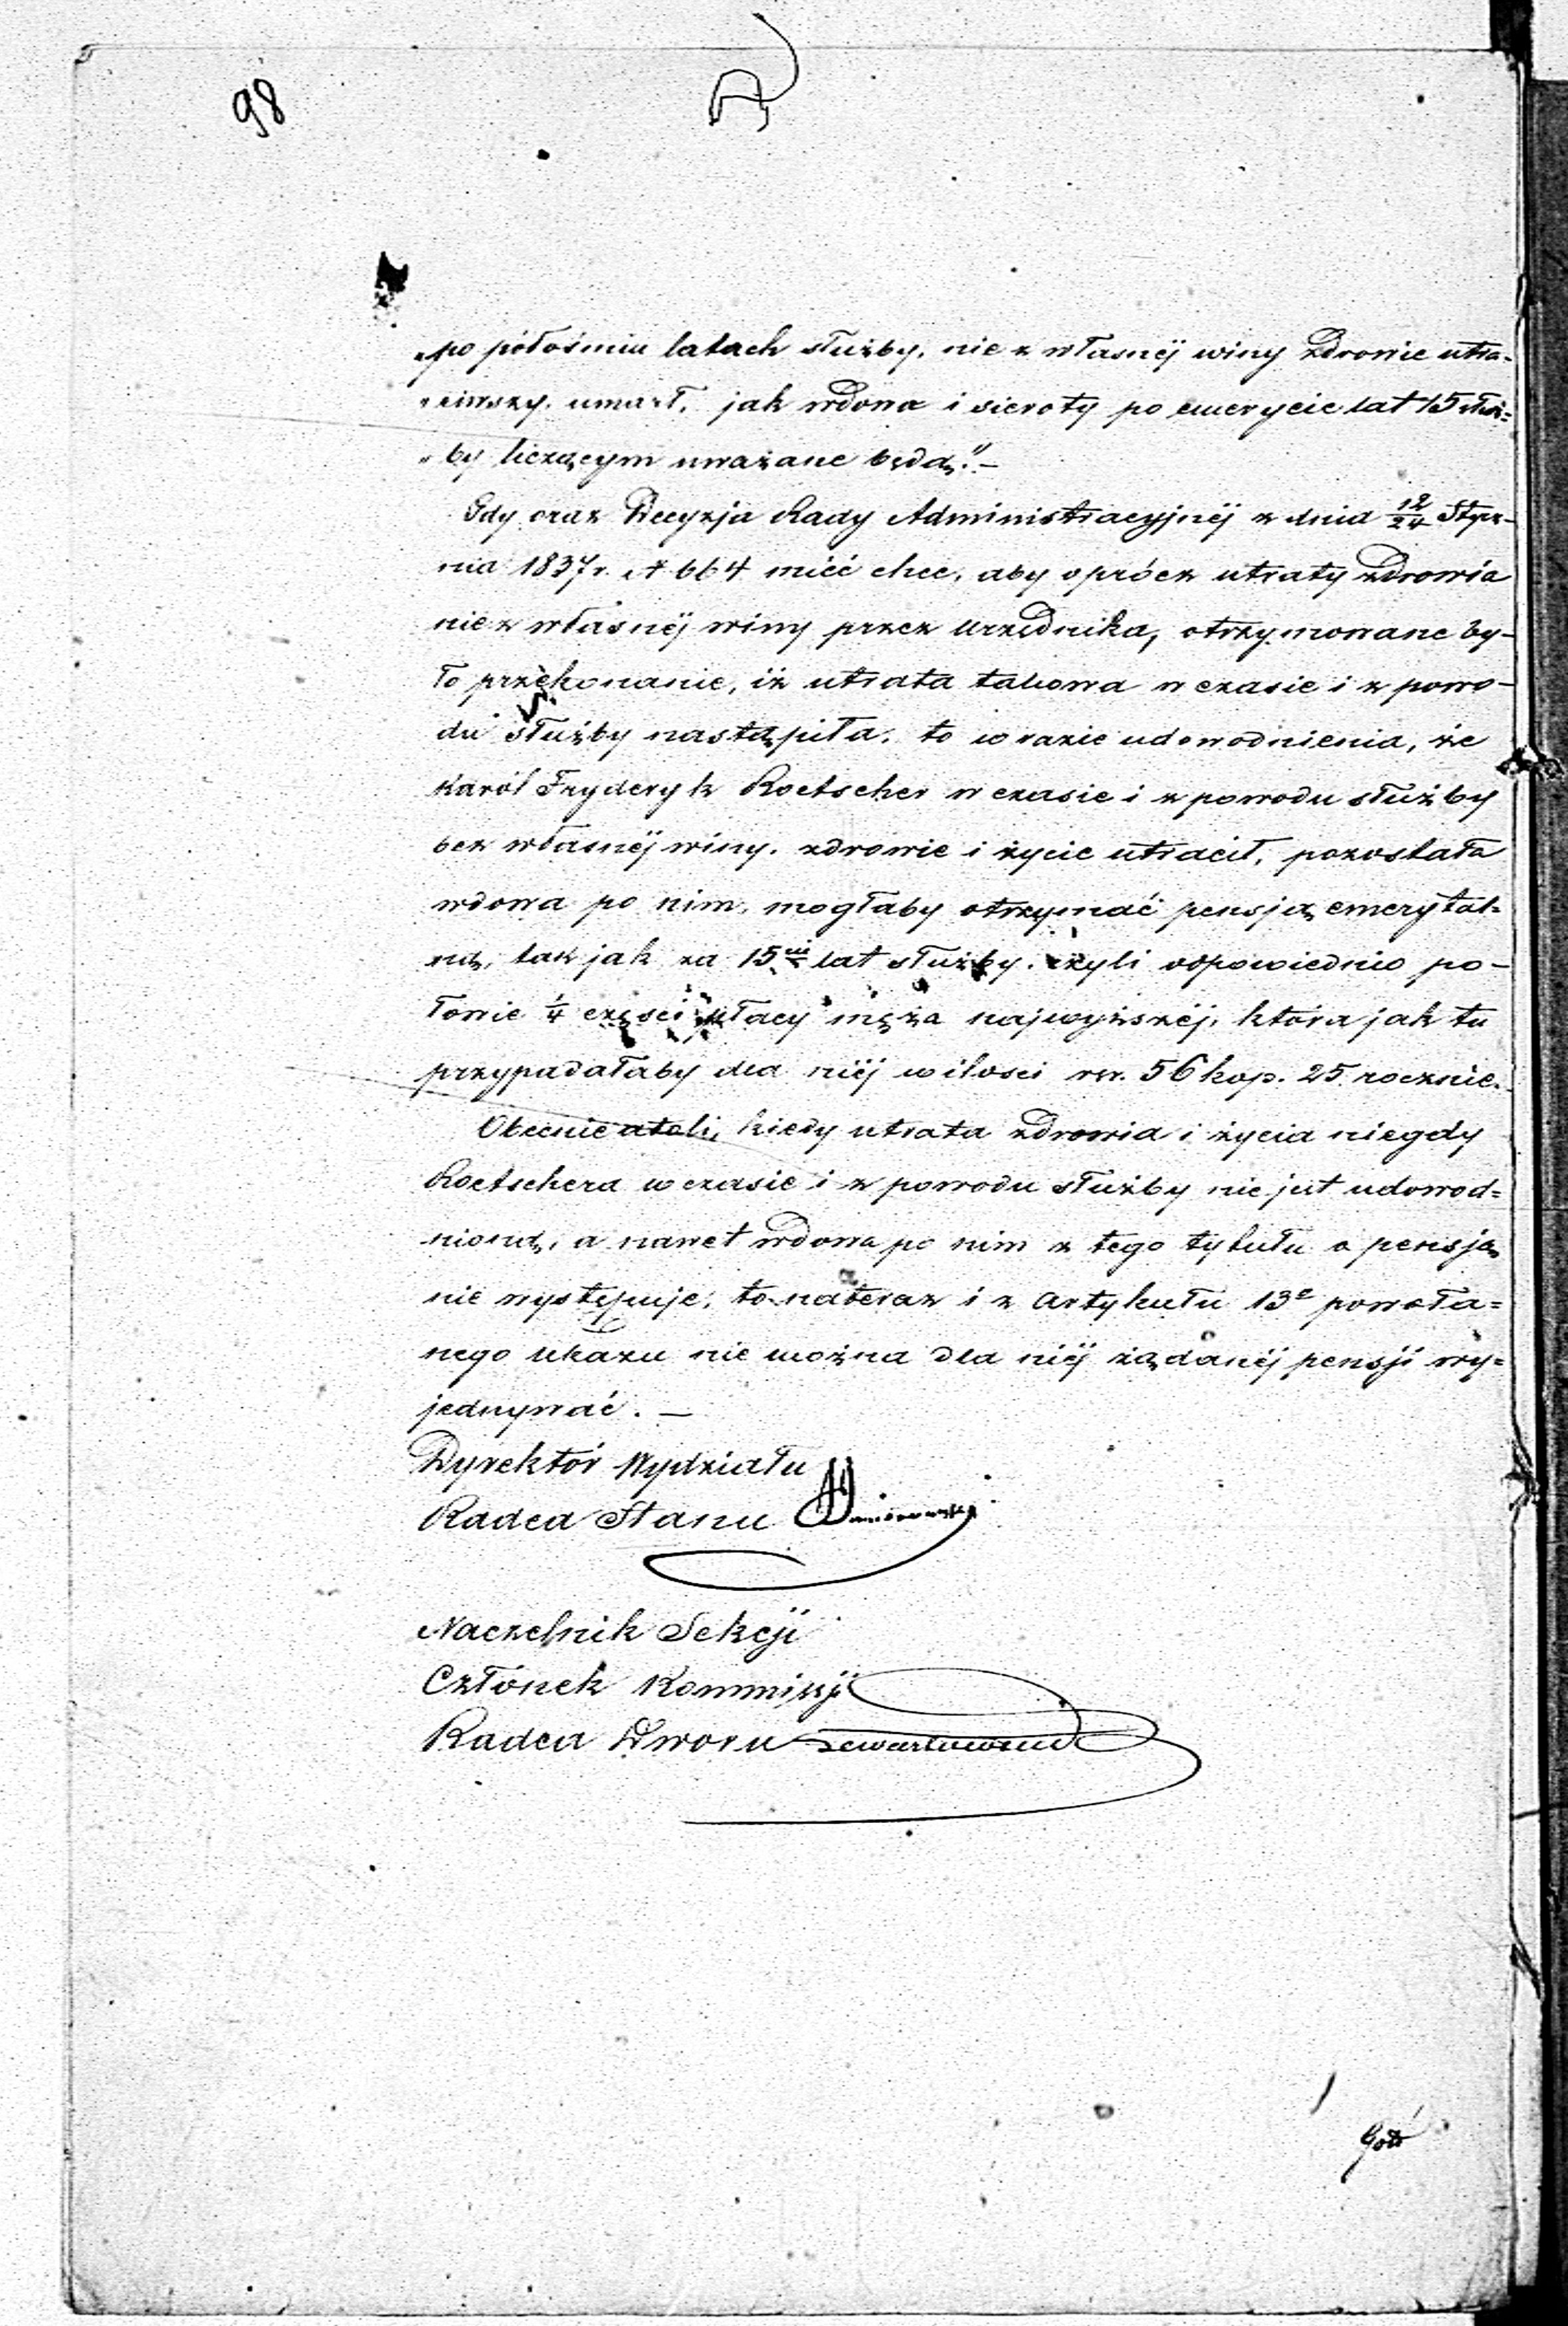 98
„po półośmiu latach służby, nie z własnéj winy zdrowie utra-
„ciwszy, umarł, jak wdowa i sieroty po emerycie lat 15 służ=
„by liczącym uważane będą."—
Gdy oraz Decyzja Rady Administracyjnéj z dnia 12/24 Stycz-
nia 1837 r. № 664 mieć chce, aby oprócz utraty zdrowia
nie z własnéj winy przez Urzędnika, otrzymowane by-
ło przekonanie, iż utrata takowa w czasie i z powo-
du służby nastąpiła, to w razie udowodnienia, że
Karól Fryderyk Roetscher w czasie i z powodu służby
bez własnéj winy, zdrowie i życie utracił, pozostała
wdowa po nim, mogłaby otrzymać pensją emerytal=
ną, tak jak za 15 lat służby, czyli odpowiednio po-
łowie 1/4 części płacy męża najwyższéj, która jak tu
przypadałaby dla niéj w ilości rsr. 56 kop. 25 rocznie.
Obecnie atoli, kiedy utrata zdrowia i życia niegdy
Roetschera w czasie i z powodu służby nie jest udowod=
nioną, a nawet wdowa po nim z tego tytułu o pensją
nie występuje, to nateraz i z Artykułu 13º powoła=
nego Ukazu nie można dla niéj żądanéj pensji wy=
jednywać. —
Dyrektór Wydziału
Radca Stanu
Naczelnik Sekcji
Członek Kommissji
Radca Dworu